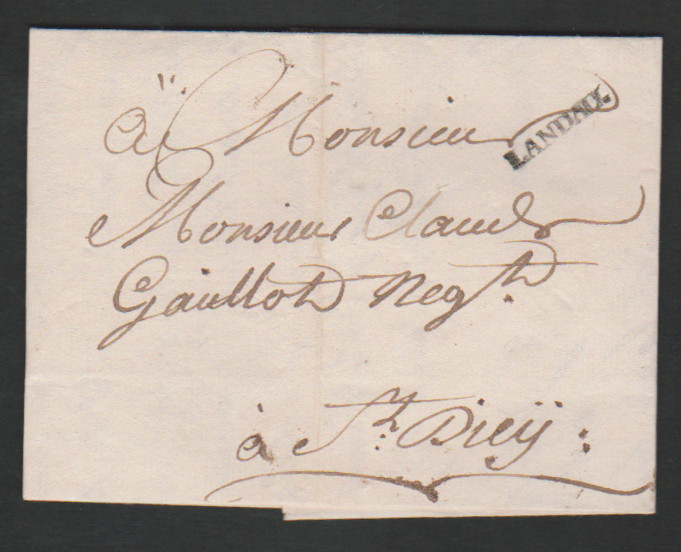 à Monsieur
LANDAU
Monsieur Claude
Gaillot Negt.
à St. Dieÿ :